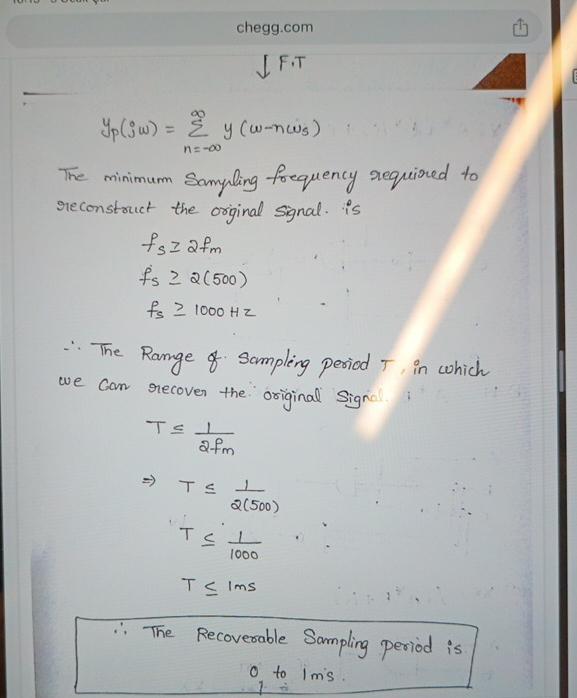 chegg.com
↓ F.T
yp(jω) = ∞ Σ n=-∞ y(ω-nωs)
The minimum Sampling frequency required to
reconstruct the orginal Signal. is
fs ≥ 2fm
fs ≥ 2(500)
fs ≥ 1000 HZ
∴ The Range of Sampling period T, in which
we Can recover the original Signal.
T ≤ 1/2fm
⇒ T ≤ 1/2(500)
T ≤ 1/1000
T ≤ 1ms
∴ The Recoverable Sampling period is
0 to 1ms.